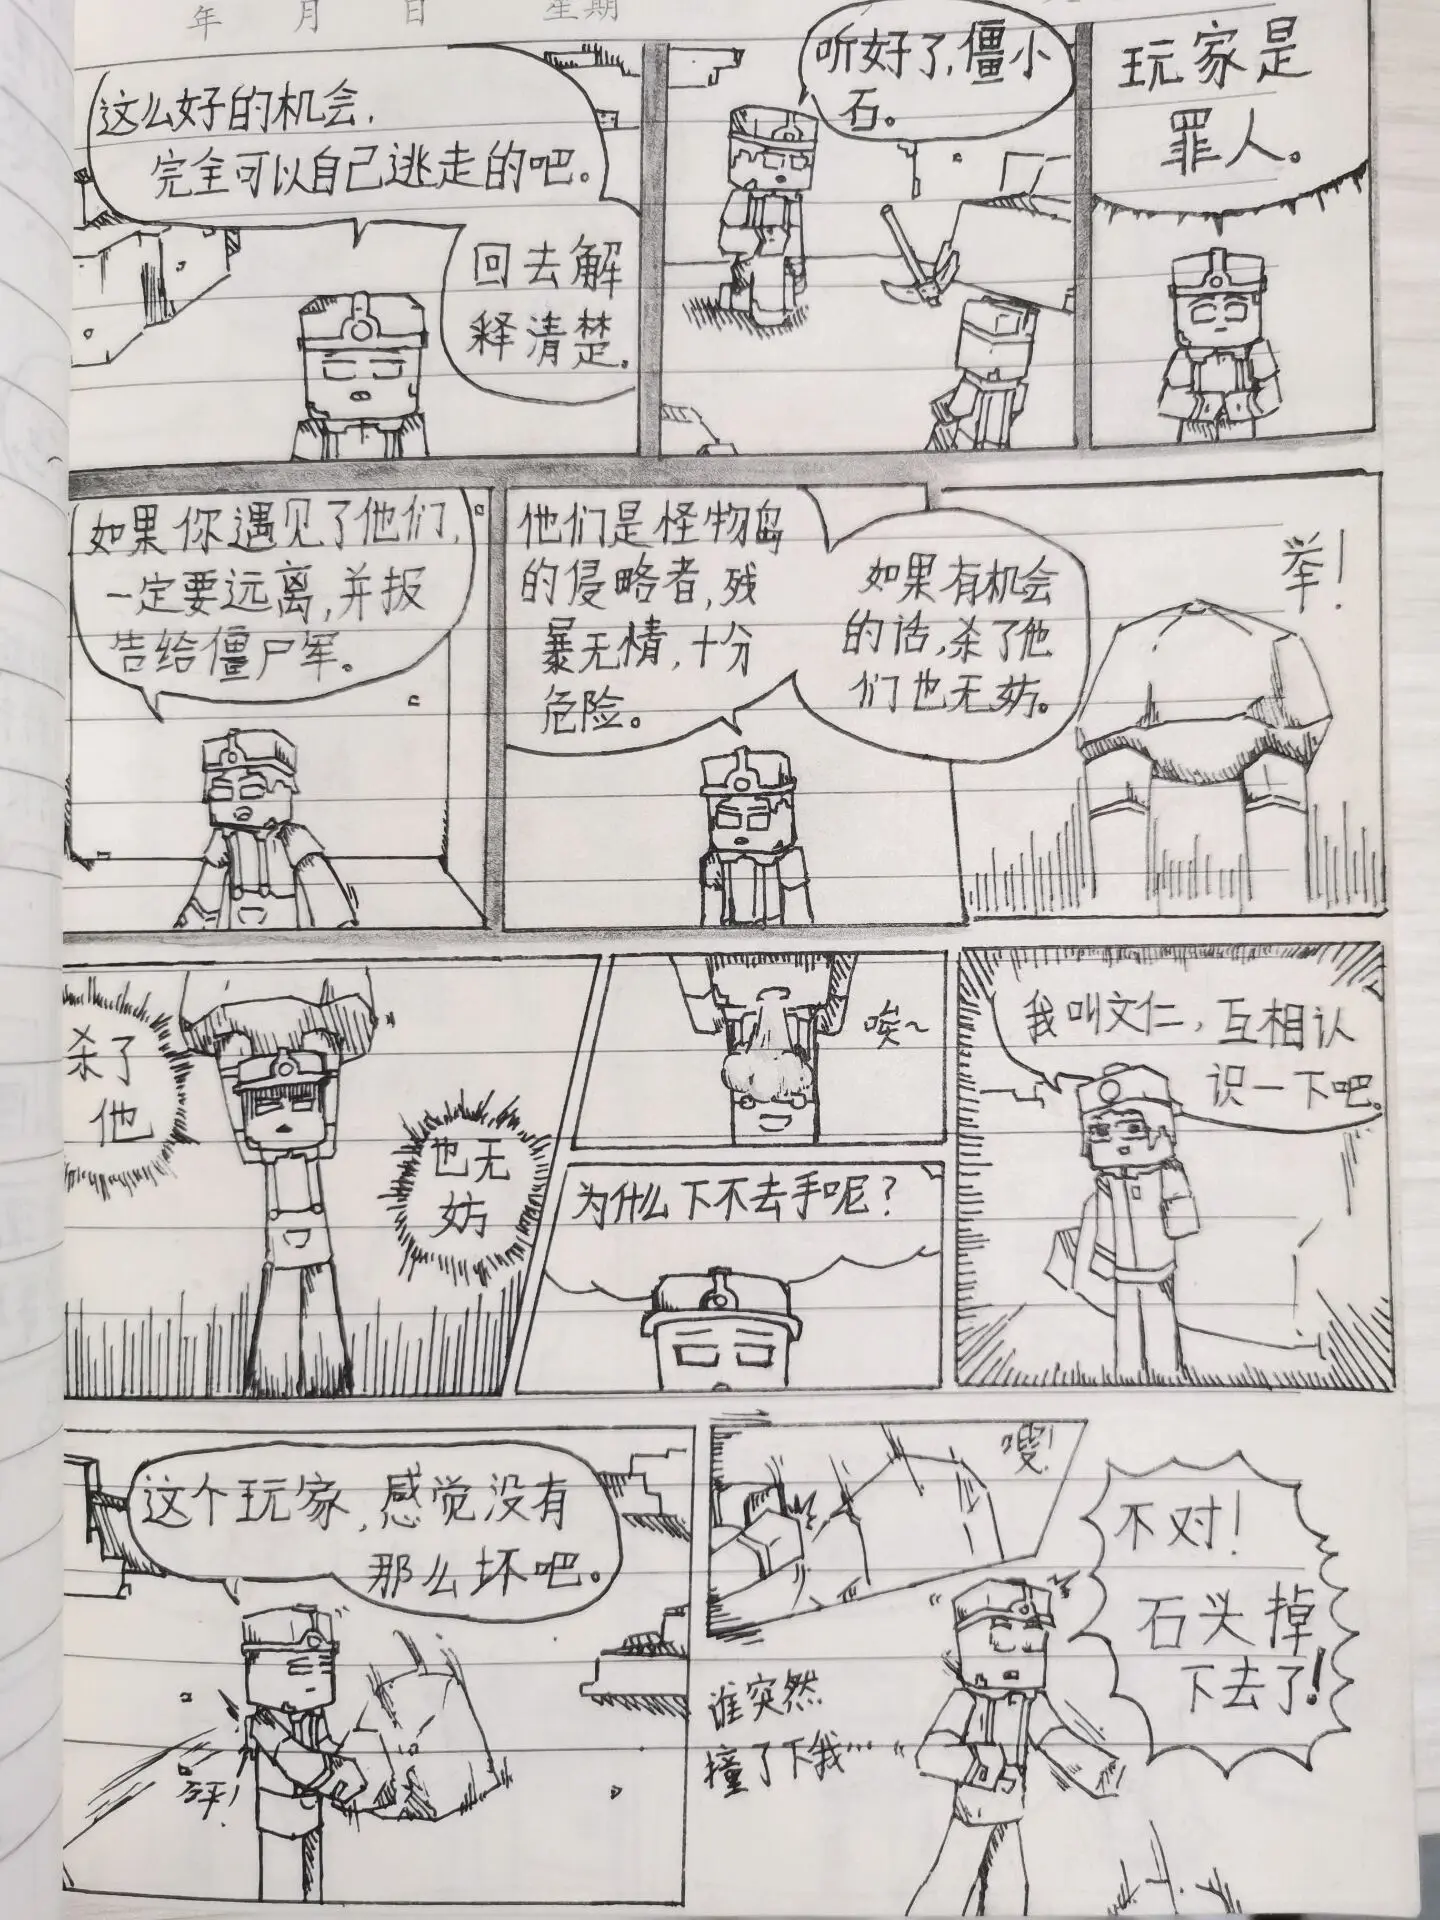 年 月 日 星期
这么好的机会，
完全可以自己逃走的吧。
回去解
释清楚。
听好了，僵小
石。
玩家是
罪人。
如果你遇见了他们，
一定要远离，并报
告给僵尸军。
他们是怪物岛
的侵略者，残
暴无情，十分
危险。
如果有机会
的话，杀了他
们也无妨。
举！
杀了
他
也无
妨
唉~
为什么下不去手呢？
我叫文仁，互相认
识一下吧。
这个玩家，感觉没有
那么坏吧。
砰！
嗖！
不对！
石头掉
下去了！
谁突然
撞了下我…